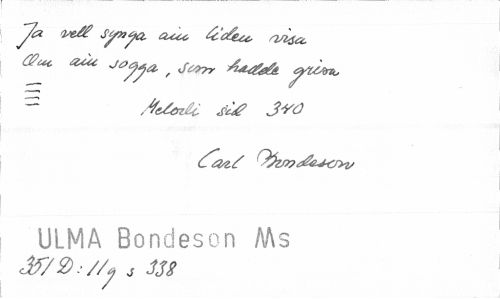 Ja vell synga ain liden visa
Om ain sogga, som hadde grisa
Melodi sid 340
Carl Bondeson
ULMA Bondeson Ms
351 D:11 g s 338